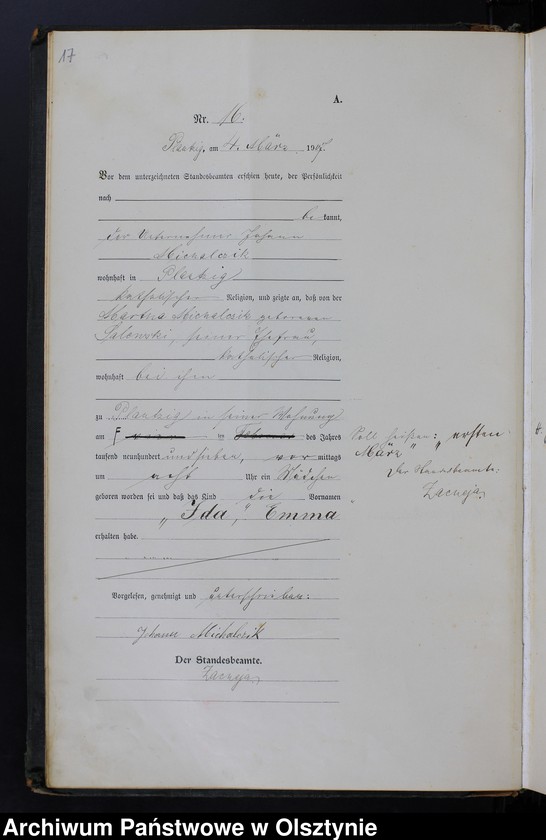 17
A.
Nr. 16.
am 4. März 1907
Vor dem unterzeichneten Standesbeamten erschien heute, der Persönlichkeit
nach
be kannt,
der Johann
Michalczik
wohnhaft in
katholischer Religion, und zeigte an, daß von der
Martha Michalczik geborenen
seiner Ehefrau,
katholischer Religion,
wohnhaft bei ihm
zu in seiner Wohnung
am im Februar des Jahres
tausend neunhundert und sieben, vor mittags
um acht Uhr ein Mädchen
geboren worden sei und daß das Kind die Vornamen
„Ida,“ Emma
erhalten habe.
Soll heißen: „ersten
März“
Der Standesbeamte:
Vorgelesen, genehmigt und unterschrieben:
Johann Michalczik
Der Standesbeamte.
Archiwum Państwowe w Olsztynie